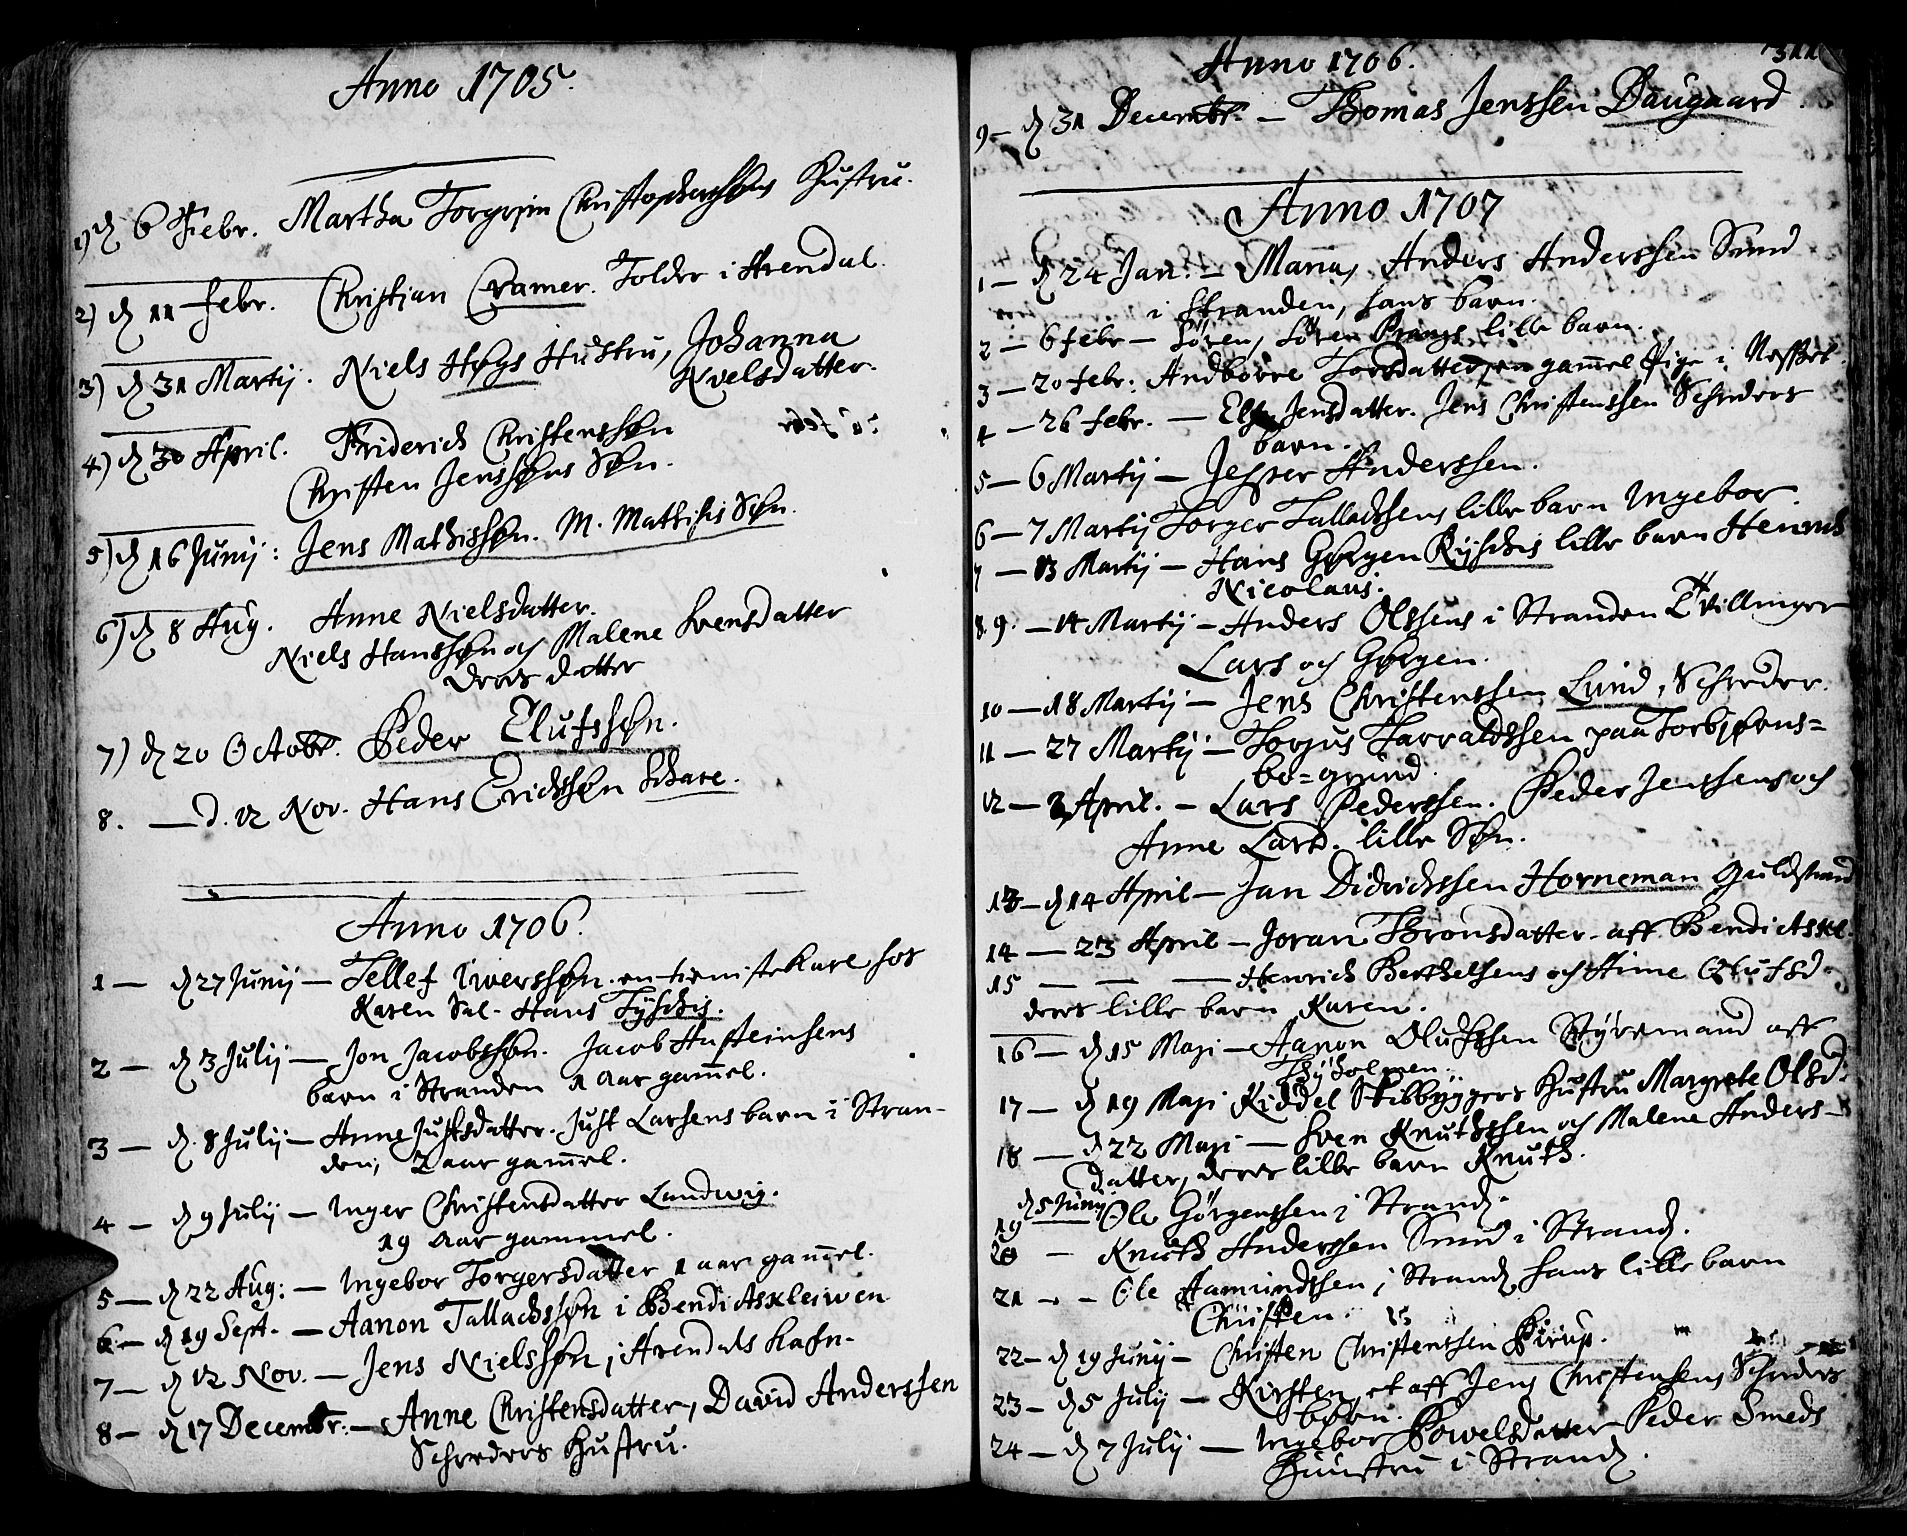 Anno 1705.
1) d 6 Febr. Martha Torgrim Christophersøns Hustru.
2) d 11 febr. Christian Cramer. Tolder i Arendal.
3) d 31 Martij. Niels Høgs Hustru, Johanna
Nielsdatter.
4) d 30 April. Friderich Christenssøn
Christen Jenssøns Søn.
5) d 16 Junij: Jens Mathissøn. M. Mathisis Søn.
6) d 8 Aug. Anne Nielsdatter.
Niels Hanssøn och Malene Svensdatter
deres datter
7) d 20 Octobr. Peder Elufssøn.
8. — d. 12 Nov. Hans Erichssøn Schare.
Anno 1706.
1 — d 27 Junij — Tellef Iverssøn. en tieniste Karl hos
Karen Sal. Hans
2 — d 3 Julij — Jon Jacobssøn. Jacob Husteinsens
barn i Stranden 1 Aar gam̄el.
3 — d. 8 Julij — Anne Justsdatter. Just Larsens barn i Stran-
den, 2 aar gam̄el.
4 — d 9 Julij — Inger Christensdatter Lundwig.
19 aar gammel.
5 — d 22 Aug: — Ingebor Torgersdatter 1 aar gam̄el.
6 — d 19 Sept. — Aanon Talladssøn i Bendichskleiwen
7 — d 12 Nov. — Jens Nielssøn i Arendals hafn.
8 — d 17 Decembr. — Anne Christensdatter, David Anderssen
Schreders Hustru.
311
Anno 1706.
9 — d 31 Decembr. — Thomas Jenssen Daugaard.
Anno 1707
1 — d 24 Jan. — Maria, Anders Anderssen Smid
i Stranden, hans barn.
2 — 6 febr — Søren, Søren Prangs lille barn.
3 — 20 febr: Andborre Torsdatter, en gam̄el Pige i
4 — 26 febr. — Else Jensdatter. Jens Christenssen Schreders
barn.
5 — 6 Martij — Jesper Anderssen.
6 — 7 Martij Torger Talladssens lille barn Ingebor.
7 — 13 Martij — Hans Gørgen Ryschis lille barn Henrich
Nicolaus.
8. 9. — 14 Martij — Anders Olssens i Stranden Tvillinger
Lars och Gørgen.
10 — 18 Martij — Jens Christenssen Lund, Schreder.
11 — 27 Martij — Torjus Tarraldssen paa Torbjørns=
bo=grund.
12 — 2 April. — Lars Pederssen. Peder Jenssens och
Anne Larsd. lille Søn.
13 — d 14 April — Jan Didrichssen Horneman Guldsmed
14 — 23 April — Joran Thronsdatter aff Bendichskl.
15 — — — Henrich Berthelsens och Anne Olufsd.
deres lille barn Karen.
16 — d 15 Maji — Aanon Olufssen Styrmand aff
THÿholmen.
17 — d 19 Maji Riddel Skibbyggers Hustru Margrete Olsd.
18 — d 22 Maji — Sven Knutssen och Malene Anders-
datter, deres lille barn Knuth.
d 5 Junij
19 Ole Gørgenssen i Strand.
20 — Knuth Anderssen Smid i Strand.
21 — Ole Aamundssen i Strand hans lille barn
Christen.
22 — d 19 Junij — Christen Christenssen Birup.
23 — d 5 Julij — Kirsten, et aff Jens Christensens Schreders
børn.
24 — d 7 Julij — Ingebor Powelsdatter Peder Smeds
Huustru i Strand.